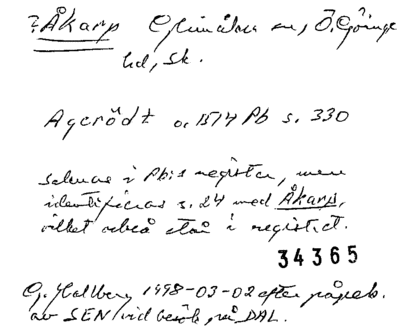 ?Åkarp Glimåkra sn, Ö. Göinge
hd, Sk.
Agerödt o. 1514 Pb s. 330
saknas i Pb:s register, men
identifieras s. 24 med Åkarp,
vilket också står i registret.
34365
G. Hallberg 1998-03-02 efter påpek.
av SEN vid besök på DAL.